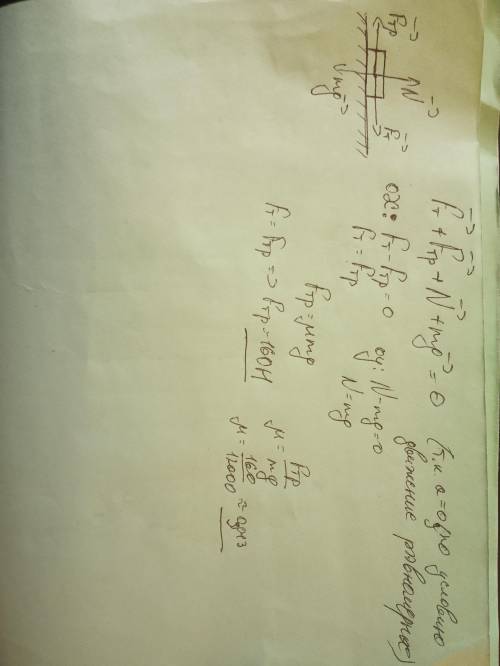 F⃗тр N⃗ F⃗т mg⃗
F⃗т + F⃗тр + N⃗ + mg⃗ = 0 (т.к a=0, по условию
движение равномерное)
ox: Fт - Fтр = 0 oy: N - mg = 0
Fт = Fтр N = mg
Fтр = μmg μ = Fтр/mg
Fт = Fтр => Fтр = 160Н μ = 160/12000 ≈ 0,013